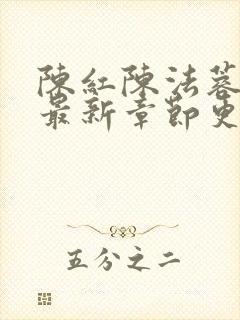 陳紅陳法蓉
最新章節更
五分之二